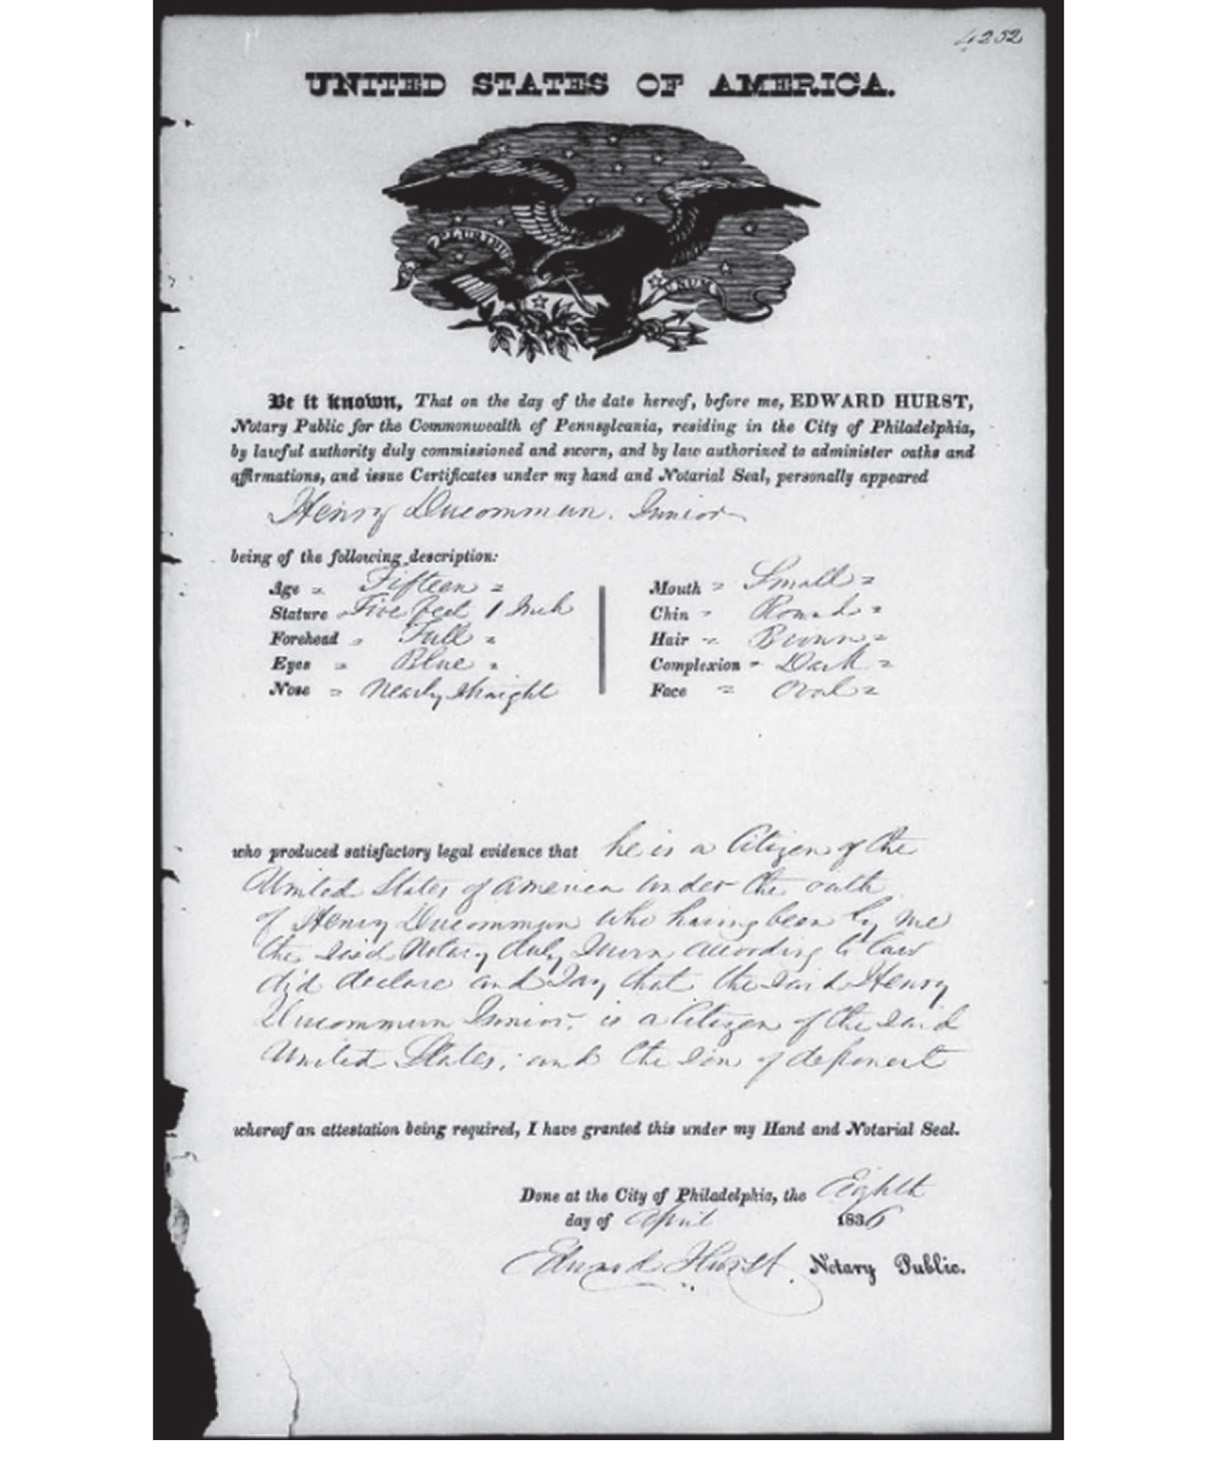 4232
UNITED STATES OF AMERICA.
PLURIBUS
UNUM
Be it known, That on the day of the date hereof, before me, EDWARD HURST,
Notary Public for the Commonwealth of Pennsylvania, residing in the City of Philadelphia,
by lawful authority duly commissioned and sworn, and by law authorized to administer oaths and
affirmations, and issue Certificates under my hand and Notarial Seal, personally appeared
Henry Ducommun. Junior
being of the following description:
Age = Fifteen =
Stature Five feet 1 Inch
Forehead = Full =
Eyes = Blue =
Nose = Nearly straight
Mouth = Small =
Chin - Round =
Hair = Brown =
Complexion = Dark =
Face = Oval =
who produced satisfactory legal evidence that he is a Citizen of the
United States of America under the oath
of Henry Ducommun who having been by me
the said Notary duly sworn according to law
did declare and say that the said Henry
Ducommun Junior, is a Citizen of the said
United States, and the son of deponent
whereof an attestation being required, I have granted this under my Hand and Notarial Seal.
Done at the City of Philadelphia, the Eighth
day of April 1836
Edward Hurst. Notary Public.